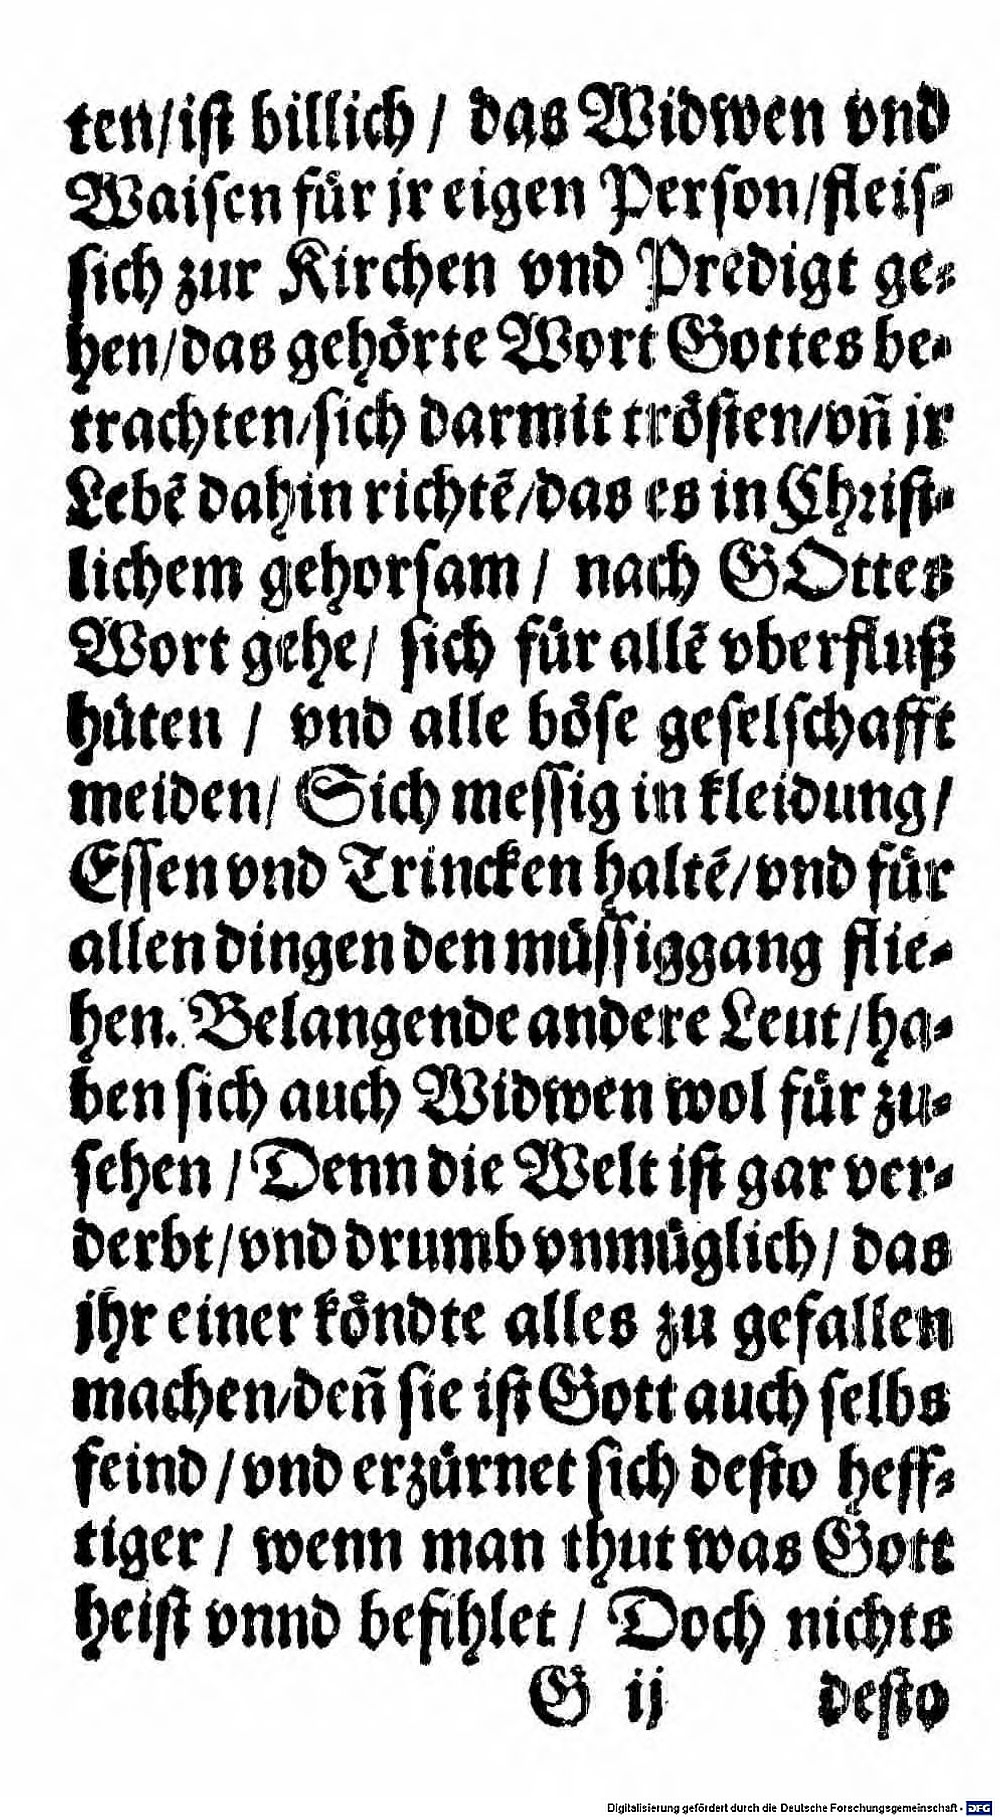 ten/ist billich / das Widwen vnd
Waisen für jr eigen Person/fleis-
sich zur Kirchen vnd Predigt ge-
hen/das gehörte Wort Gottes be-
trachten/sich darmit trösten/vñ jr
Lebē dahin richtē/das es in Christ-
lichem gehorsam / nach GOttes
Wort gehe/ sich für allē vberfluß
hüten / vnd alle böse geselschafft
meiden/ Sich messig in kleidung/
Essen vnd Trincken haltē/vnd für
allen dingen den müssiggang flie-
hen. Belangende andere Leut/ha-
ben sich auch Widwen wol für zu-
sehen / Denn die Welt ist gar ver-
derbt/vnd drumb vnmüglich/ das
jhr einer köndte alles zu gefallen
machen/deñ sie ist Gott auch selbs
feind /vnd erzürnet sich desto heff-
tiger / wenn man thut was Gott
heist vnnd befihlet / Doch nichts
G ij desto
Digitalisierung gefördert durch die Deutsche Forschungsgemeinschaft - DFG